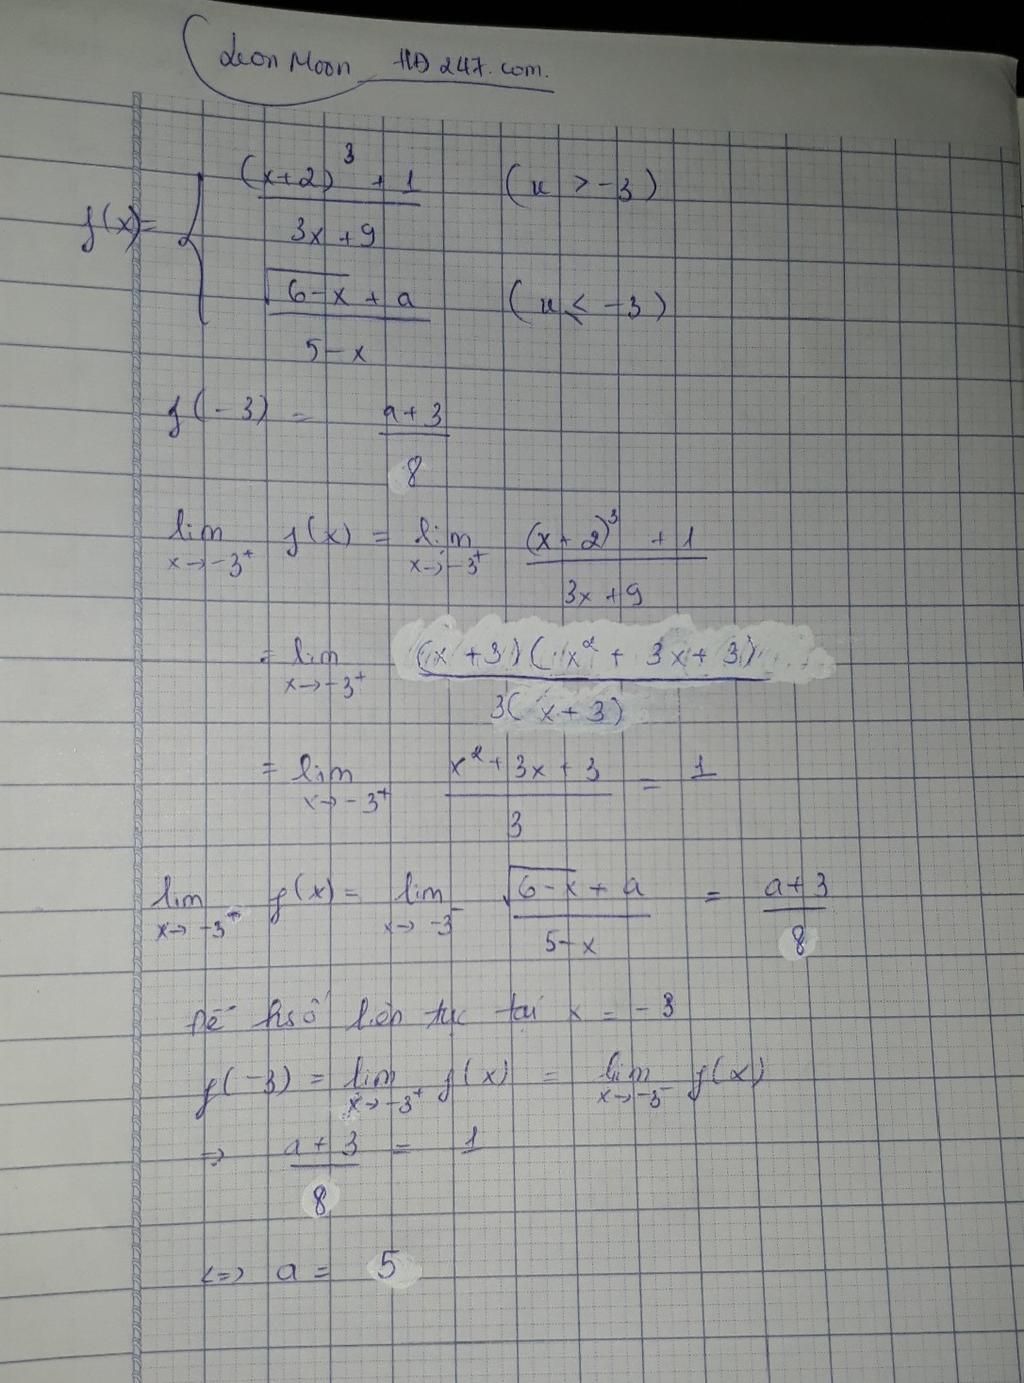 Leon Moon HD 247. com.
f(x) = { ((x+2)³ + 1)/(3x + 9) (x > -3)
(√(6-x) + a)/(5-x) (x ≤ -3)
f(-3) = (a+3)/8
lim x→-3⁺ f(x) = lim x→-3⁺ ((x+2)³ + 1)/(3x+9)
= lim x→-3⁺ ((x+3)(x² + 3x + 3))/(3(x+3))
= lim x→-3⁺ (x² + 3x + 3)/3 = 1
lim x→-3⁺ f(x) = lim x→-3⁻ (√(6-x) + a)/(5-x) = (a+3)/8
Để hsố liên tục tại x = -3
f(-3) = lim x→-3⁺ f(x) = lim x→-3⁻ f(x)
⇒ (a+3)/8 = 1
<=> a = 5